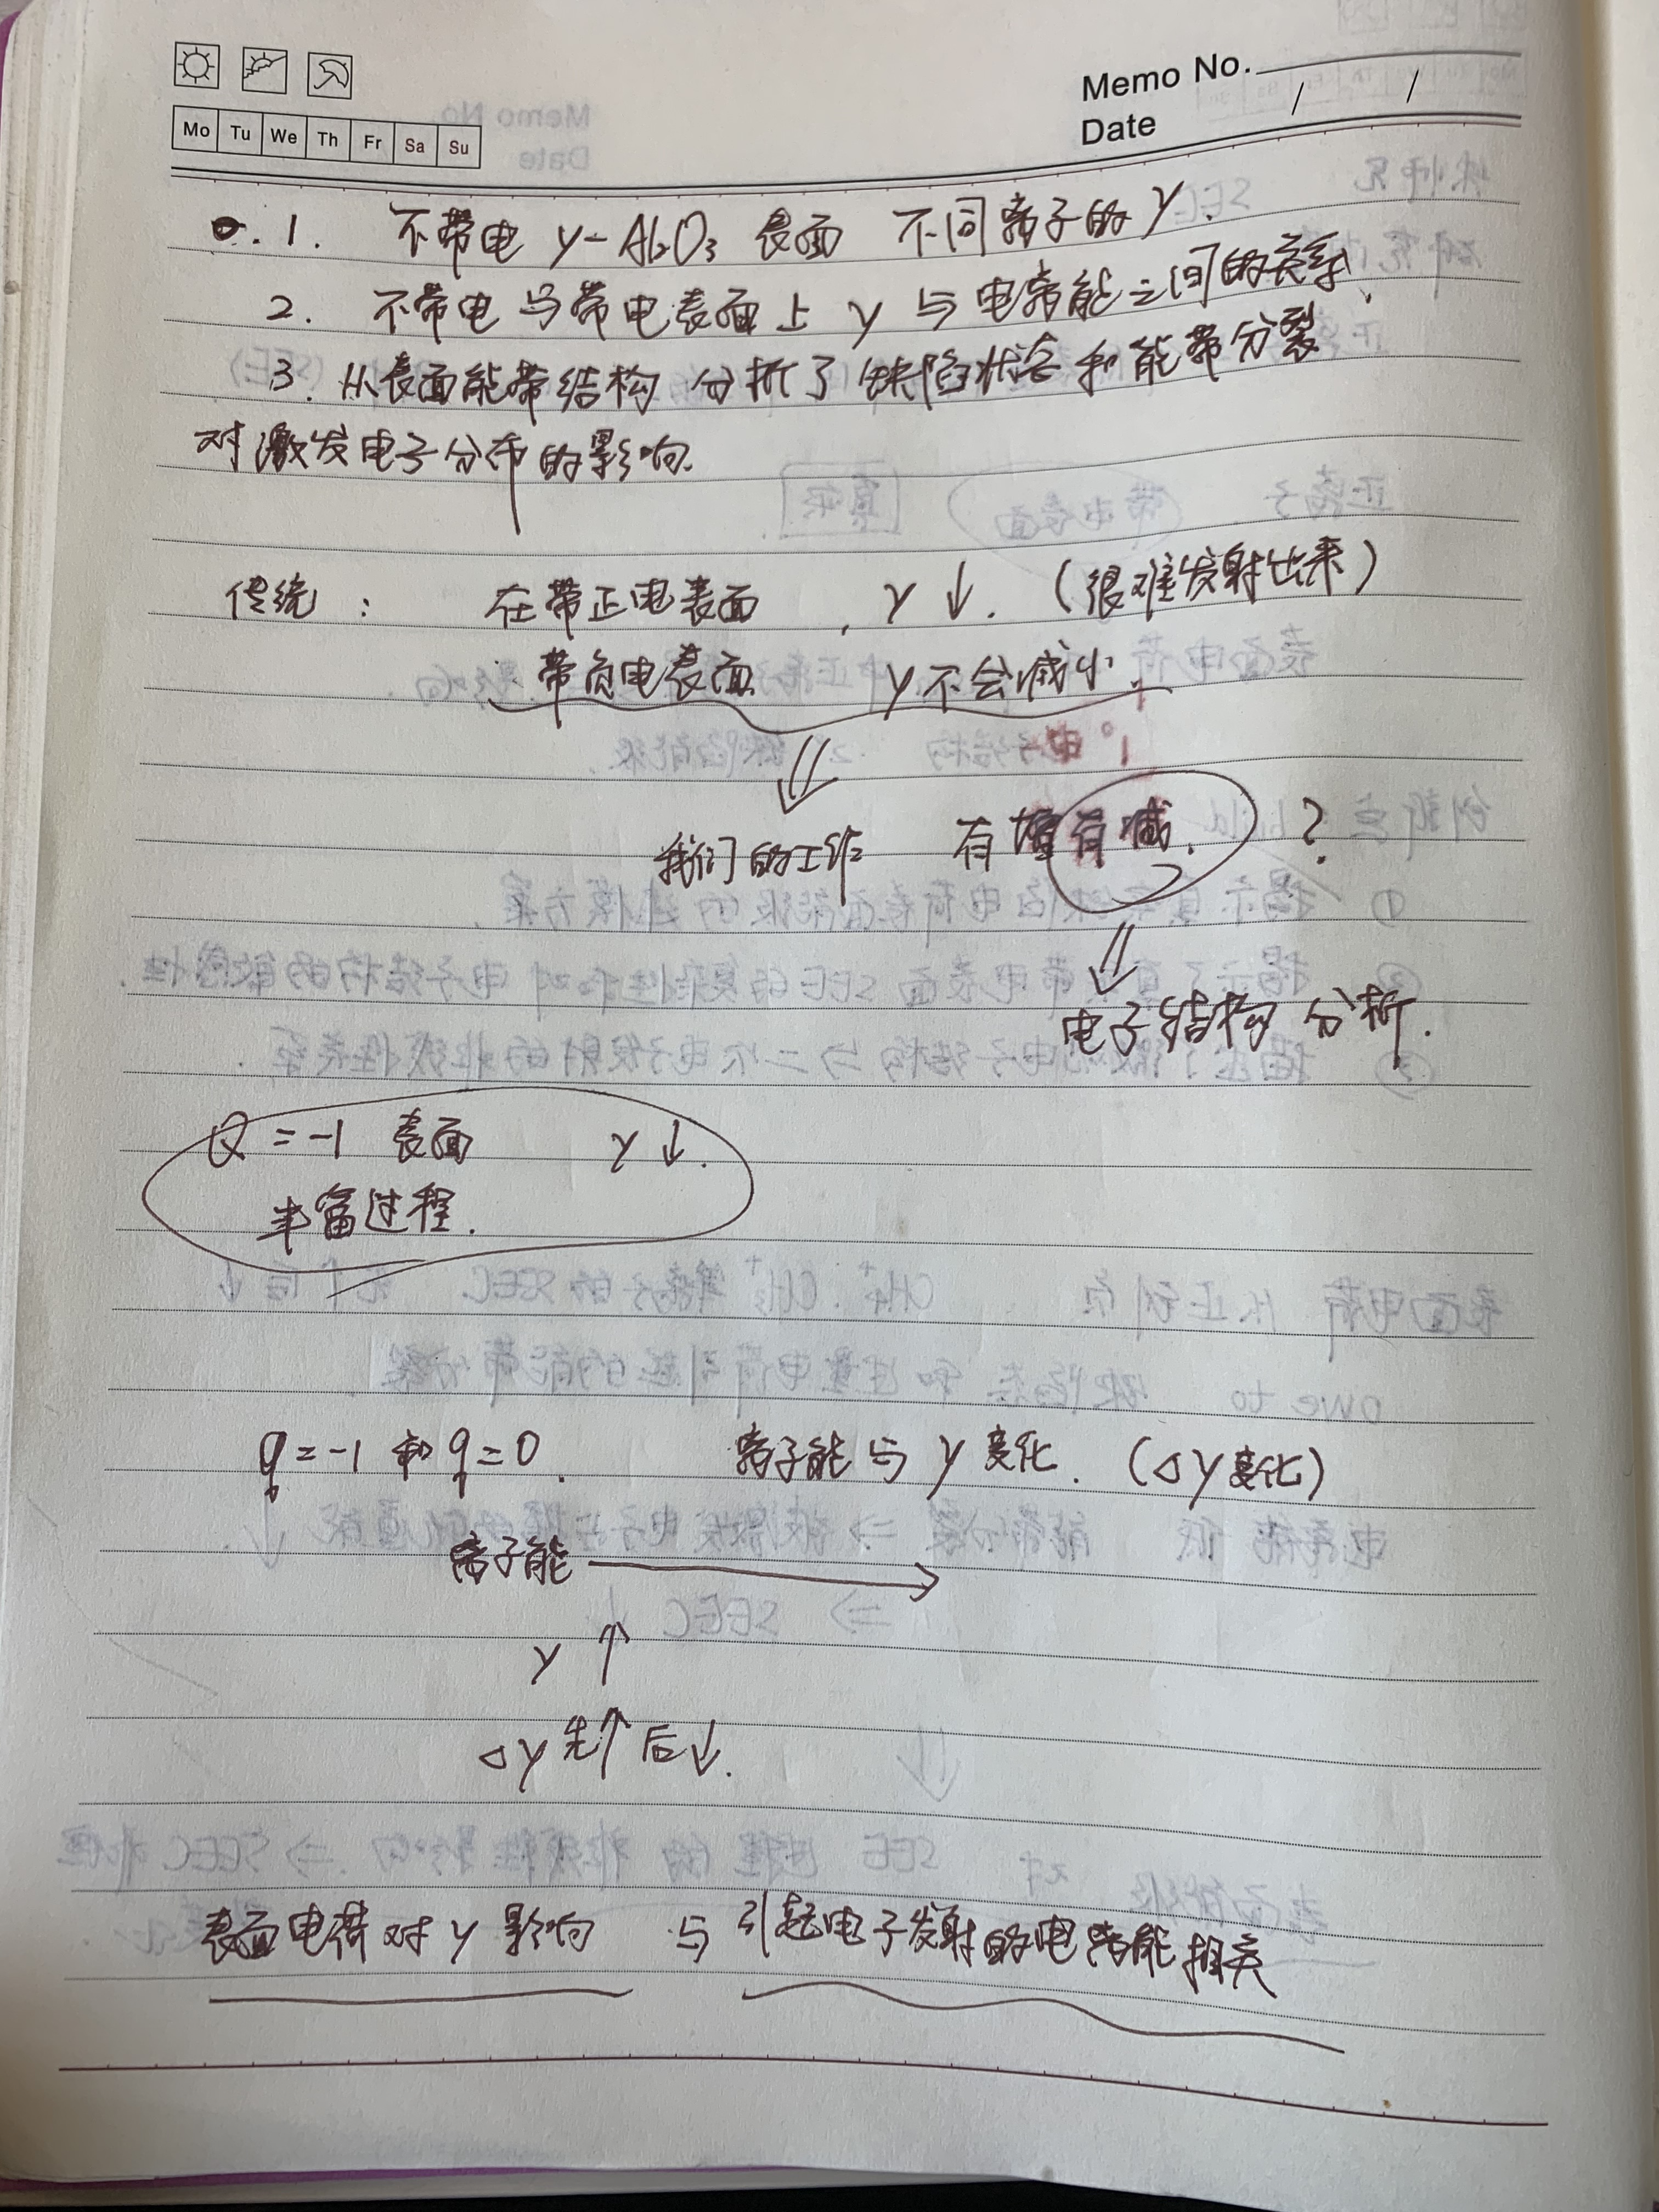 Memo No.
Mo Tu We Th Fr Sa Su
Date / /
1. 不带电 γ-Al₂O₃ 表面 不同离子的 γ.
2. 不带电与带电表面上 γ 与电离能之间的关系.
3. 从表面能带结构 分析了缺陷状态和能带分裂
对激发电子分布的影响.
传统: 在带正电表面, γ ↓. (很难发射出来)
带负电表面 γ不会减小.
⇓
我们的工作 有增有减. ?
⇓
电子结构分析.
Q = -1 表面 γ ↓.
丰富过程.
q = -1 和 q = 0. 离子能与 γ 变化. (Δγ变化)
离子能 →
γ ↑
Δγ 先↑ 后↓.
表面电荷对 γ 影响 与引起电子发射的电离能相关